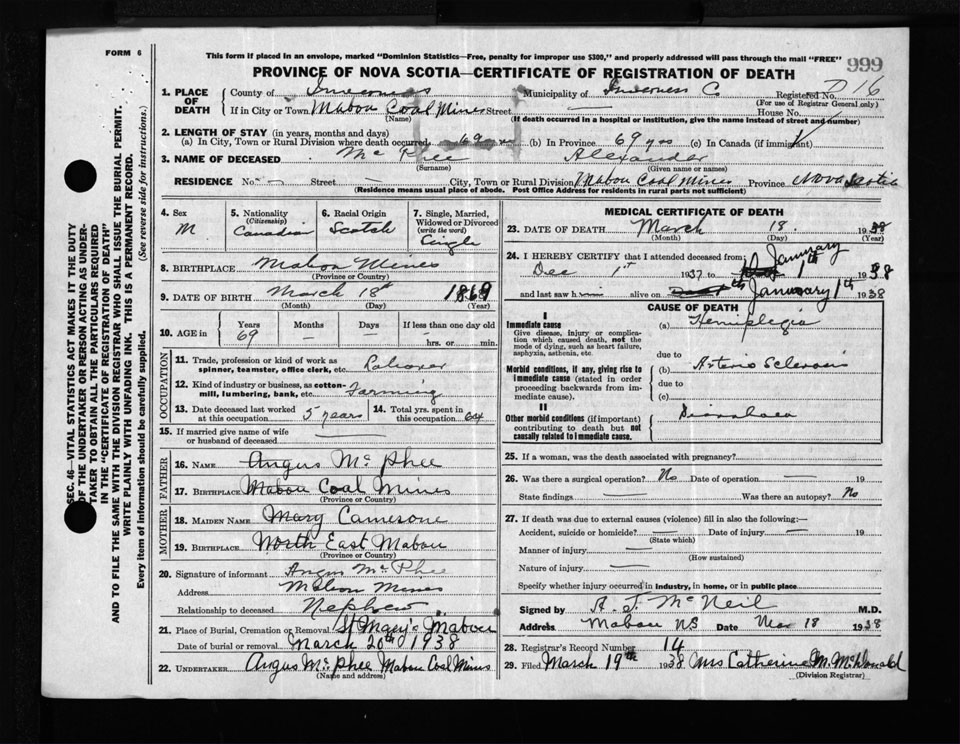 FORM 6
This form if placed in an envelope, marked "Dominion Statistics—Free, penalty for improper use $300," and properly addressed will pass through the mail "FREE"
999
PROVINCE OF NOVA SCOTIA—CERTIFICATE OF REGISTRATION OF DEATH
1. PLACE OF DEATH
County of Inverness Municipality of Inverness C. Registered No. D 16
(For use of Registrar General only)
If in City or Town Mabou Coal Mines Street — House No.
(Name) (If death occurred in a hospital or institution, give the name instead of street and number)
2. LENGTH OF STAY (in years, months and days)
(a) In City, Town or Rural Division where death occurred 69 yrs (b) In Province 69 yrs (c) In Canada (if immigrant)
3. NAME OF DECEASED Mc Phee Alexander
(Surname) (Given name or names)
RESIDENCE No. — Street — City, Town or Rural Division Mabou Coal Mines Province Nova Scotia
(Residence means usual place of abode. Post Office Address for residents in rural parts not sufficient)
4. Sex M
5. Nationality (Citizenship) Canadian
6. Racial Origin Scotch
7. Single, Married, Widowed or Divorced (write the word) Cingle
8. BIRTHPLACE Mabou Mines
(Province or Country)
9. DATE OF BIRTH March 18th 1869
(Month) (Day) (Year)
10. AGE in Years 69 Months — Days — If less than one day old — hrs. or min.
OCCUPATION
11. Trade, profession or kind of work as spinner, teamster, office clerk, etc. Laborer
12. Kind of industry or business, as cotton-mill, lumbering, bank, etc. Farming
13. Date deceased last worked at this occupation 5 years
14. Total yrs. spent in this occupation 64
15. If married give name of wife or husband of deceased —
FATHER
16. NAME Angus Mc Phee
17. BIRTHPLACE Mabou Coal Mines
(Province or Country)
MOTHER
18. MAIDEN NAME Mary Camerone
19. BIRTHPLACE North East Mabou
(Province or Country)
20. Signature of informant Angus Mc Phee
Address Mabou Mines
Relationship to deceased Nephew
21. Place of Burial, Cremation or Removal St Mary's Mabou
Date of burial or removal March 20th 1938
22. UNDERTAKER Angus Mc Phee Mabou Coal Mines
(Name and address)
MEDICAL CERTIFICATE OF DEATH
23. DATE OF DEATH March 18. 1938
(Month) (Day) (Year)
24. I HEREBY CERTIFY that I attended deceased from
Dec 1st 1937 to January 1th 1938
and last saw h alive on January 1th 1938
CAUSE OF DEATH
I
Immediate cause
Give disease, injury or complication which caused death, not the mode of dying, such as heart failure, asphyxia, asthenia, etc.
(a) Hemiplegia
due to
Morbid conditions, if any, giving rise to immediate cause (stated in order proceeding backwards from immediate cause).
(b) Arterio Sclerosis
due to
(c)
II
Other morbid conditions (if important) contributing to death but not causally related to immediate cause.
Diarrhoea
25. If a woman, was the death associated with pregnancy?
26. Was there a surgical operation? No Date of operation — 19
State findings — Was there an autopsy? No
27. If death was due to external causes (violence) fill in also the following:—
Accident, suicide or homicide? — Date of injury — 19
(State which)
Manner of injury —
(How sustained)
Nature of injury —
Specify whether injury occurred in industry, in home, or in public place
Signed by A. J. Mc Neil M.D.
Address Mabou NS Date Mar 18 1938
28. Registrar's Record Number 14
29. Filed March 19th 1938 Mrs Catherine M. McDonald
(Division Registrar)
SEC. 46—VITAL STATISTICS ACT MAKES IT THE DUTY
OF THE UNDERTAKER OR PERSON ACTING AS UNDER-
TAKER TO OBTAIN ALL THE PARTICULARS REQUIRED
IN THE "CERTIFICATE OF REGISTRATION OF DEATH"
AND TO FILE THE SAME WITH THE DIVISION REGISTRAR WHO SHALL ISSUE THE BURIAL PERMIT.
WRITE PLAINLY WITH UNFADING INK. THIS IS A PERMANENT RECORD.
Every item of information should be carefully supplied. (See reverse side for instructions.)